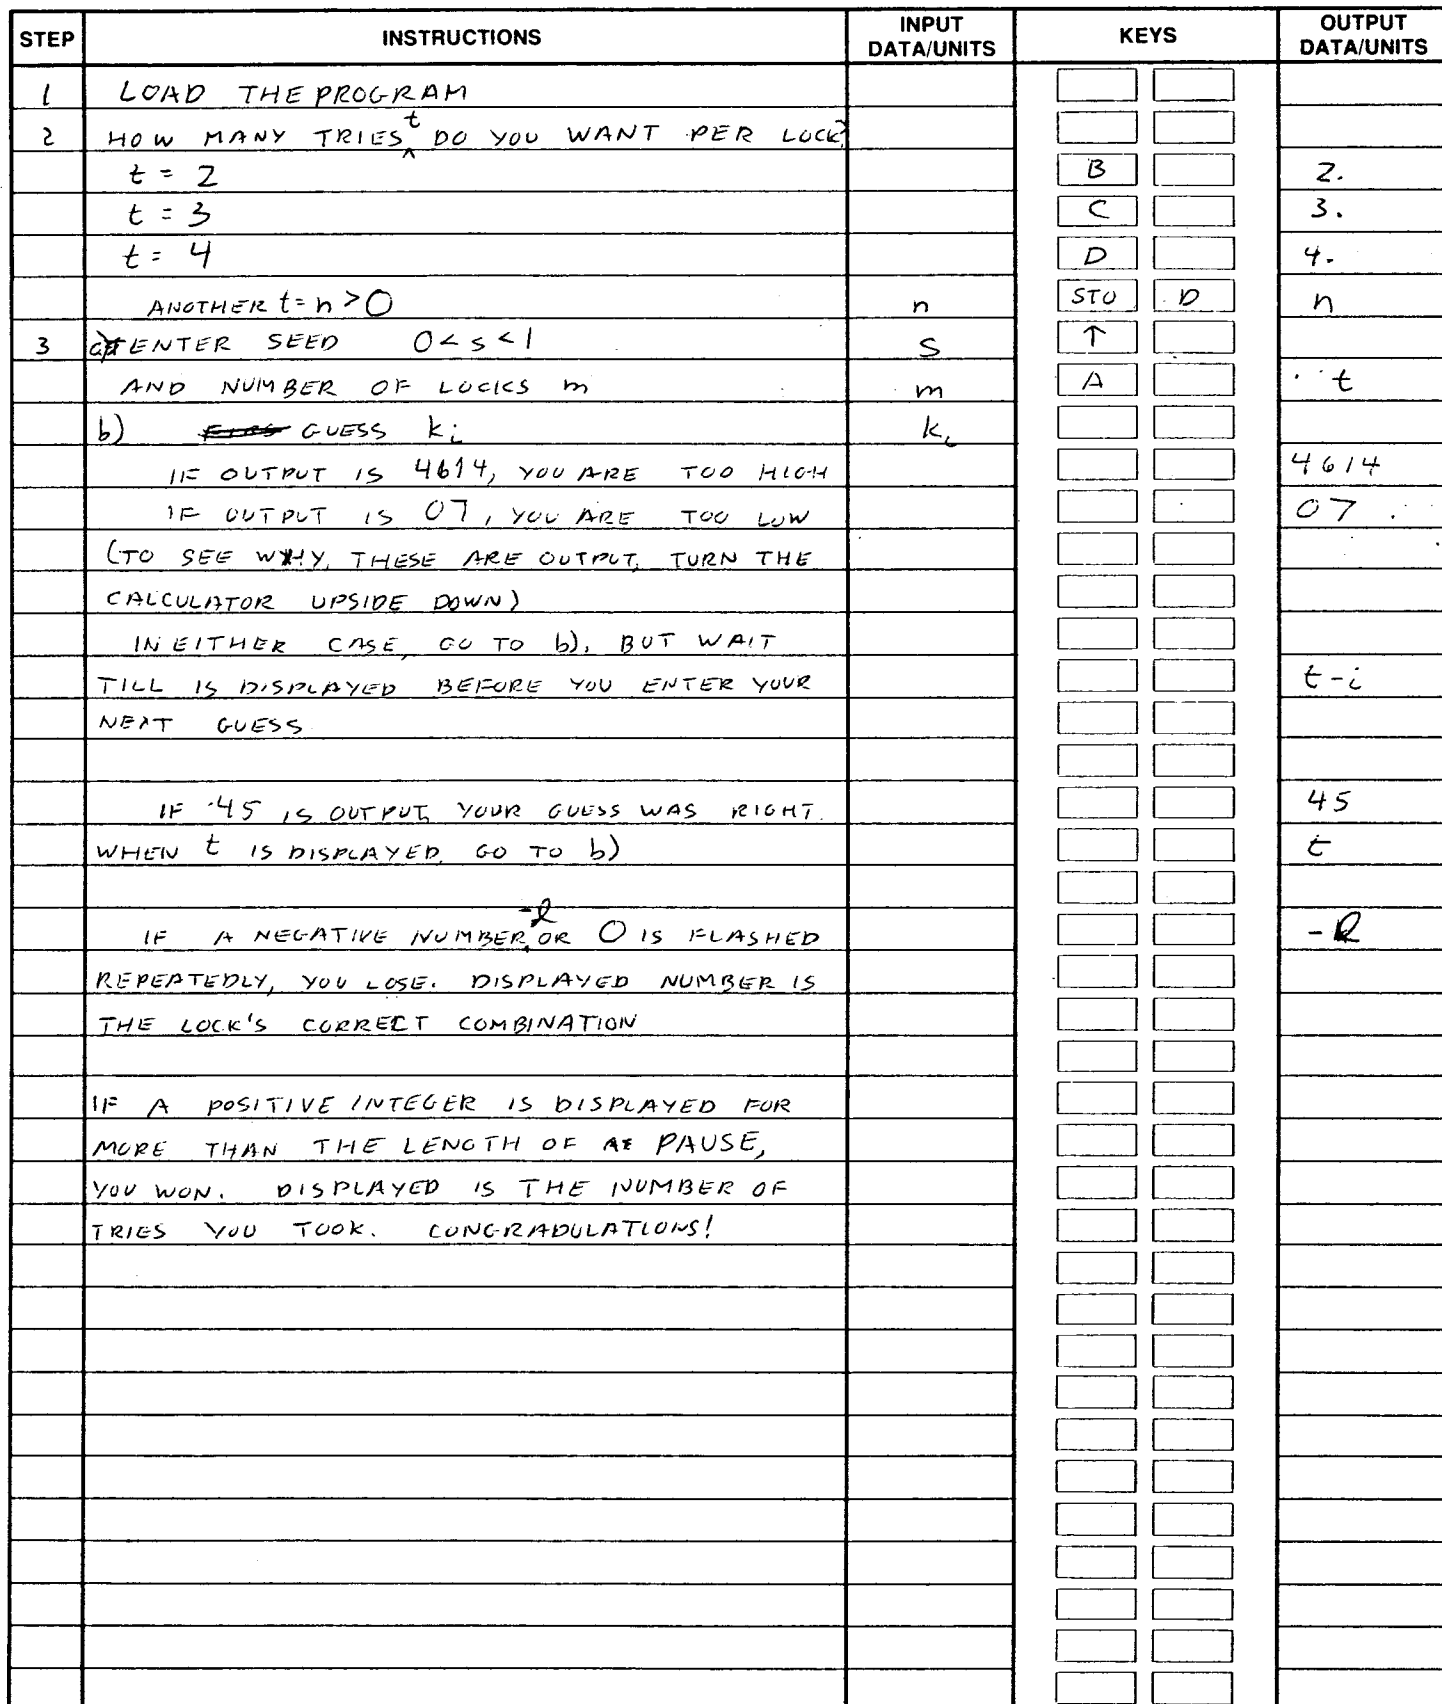 STEP INSTRUCTIONS INPUT DATA/UNITS KEYS OUTPUT DATA/UNITS
1 LOAD THE PROGRAM
2 HOW MANY TRIES t DO YOU WANT PER LOCK?
t = 2 B 2.
t = 3 C 3.
t = 4 D 4.
ANOTHER t = n > 0 n STO D n
3 a) ENTER SEED 0 < s < 1 S ↑
AND NUMBER OF LOCKS m m A t
b) GUESS ki ki
IF OUTPUT IS 4614, YOU ARE TOO HIGH 4614
IF OUTPUT IS 07, YOU ARE TOO LOW 07
(TO SEE WHY, THESE ARE OUTPUT, TURN THE
CALCULATOR UPSIDE DOWN)
IN EITHER CASE, GO TO b), BUT WAIT
TILL IS DISPLAYED BEFORE YOU ENTER YOUR t-i
NEXT GUESS
IF 45 IS OUTPUT, YOUR GUESS WAS RIGHT. 45
WHEN t IS DISPLAYED, GO TO b) t
IF A NEGATIVE NUMBER -l OR 0 IS FLASHED -l
REPEATEDLY, YOU LOSE. DISPLAYED NUMBER IS
THE LOCK'S CORRECT COMBINATION
IF A POSITIVE INTEGER IS DISPLAYED FOR
MORE THAN THE LENGTH OF A PAUSE,
YOU WON. DISPLAYED IS THE NUMBER OF
TRIES YOU TOOK. CONGRADULATIONS!